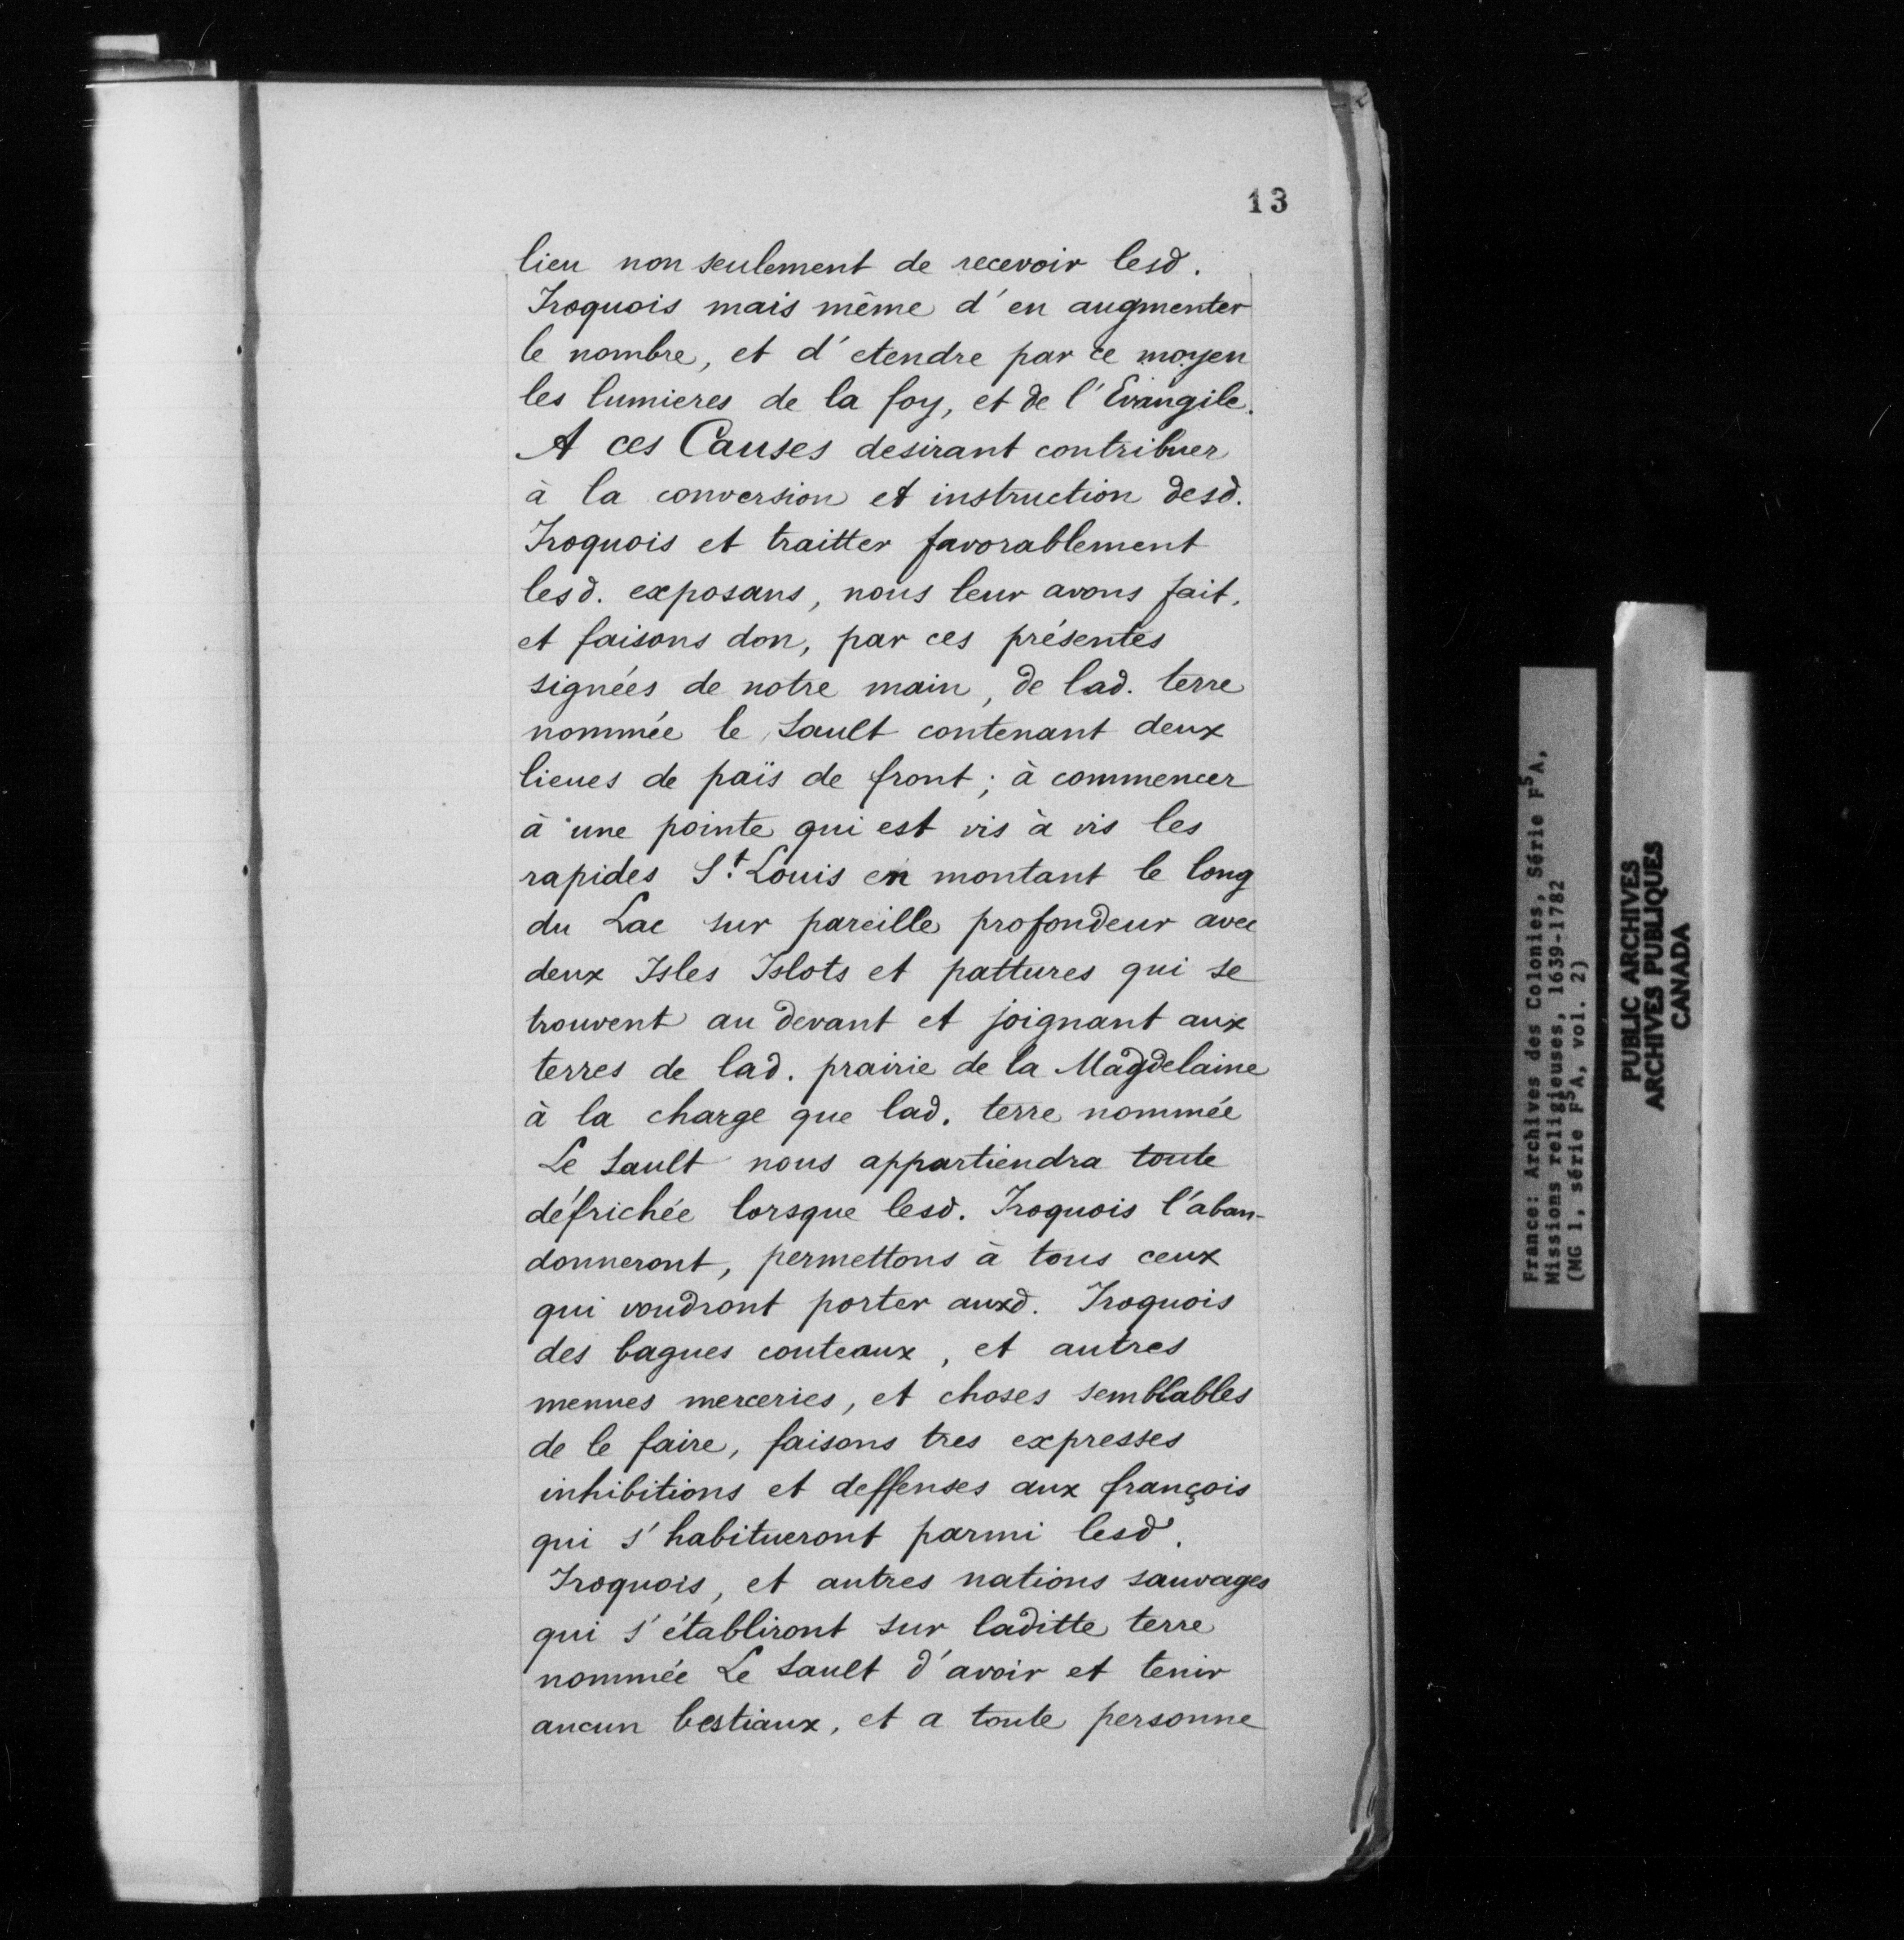 13
lieu non seulement de recevoir lesd.
Iroquois mais même d'en augmenter
le nombre, et d'etendre par ce moyen
les lumieres de la foy, et de l'Evangile.
A ces Causes desirant contribuer
à la conversion et instruction desd.
Iroquois et traitter favorablement
lesd. exposans, nous leur avons fait,
et faisons don, par ces présentes
signées de notre main, de lad. terre
nommée le Sault contenant deux
lieues de païs de front; à commencer
à une pointe qui est vis à vis les
rapides St. Louis en montant le long
du Lac sur pareille profondeur avec
deux Isles Islots et pattures qui se
trouvent au devant et joignant aux
terres de lad. prairie de la Magdelaine
à la charge que lad. terre nommée
Le Sault nous appartiendra toute
défrichée lorsque lesd. Iroquois l'aban-
donneront, permettons à tous ceux
qui voudront porter auxd. Iroquois
des bagues couteaux, et autres
menues merceries, et choses semblables
de le faire, faisons tres expresses
inhibitions et deffenses aux françois
qui s'habitueront parmi lesd.
Iroquois, et autres nations sauvages
qui s'établiront sur laditte terre
nommée Le Sault d'avoir et tenir
aucun bestiaux, et a toute personne
France: Archives des Colonies, Série F5A,
Missions religieuses, 1639-1782
(MG 1, série F5A, vol. 2)
PUBLIC ARCHIVES
ARCHIVES PUBLIQUES
CANADA